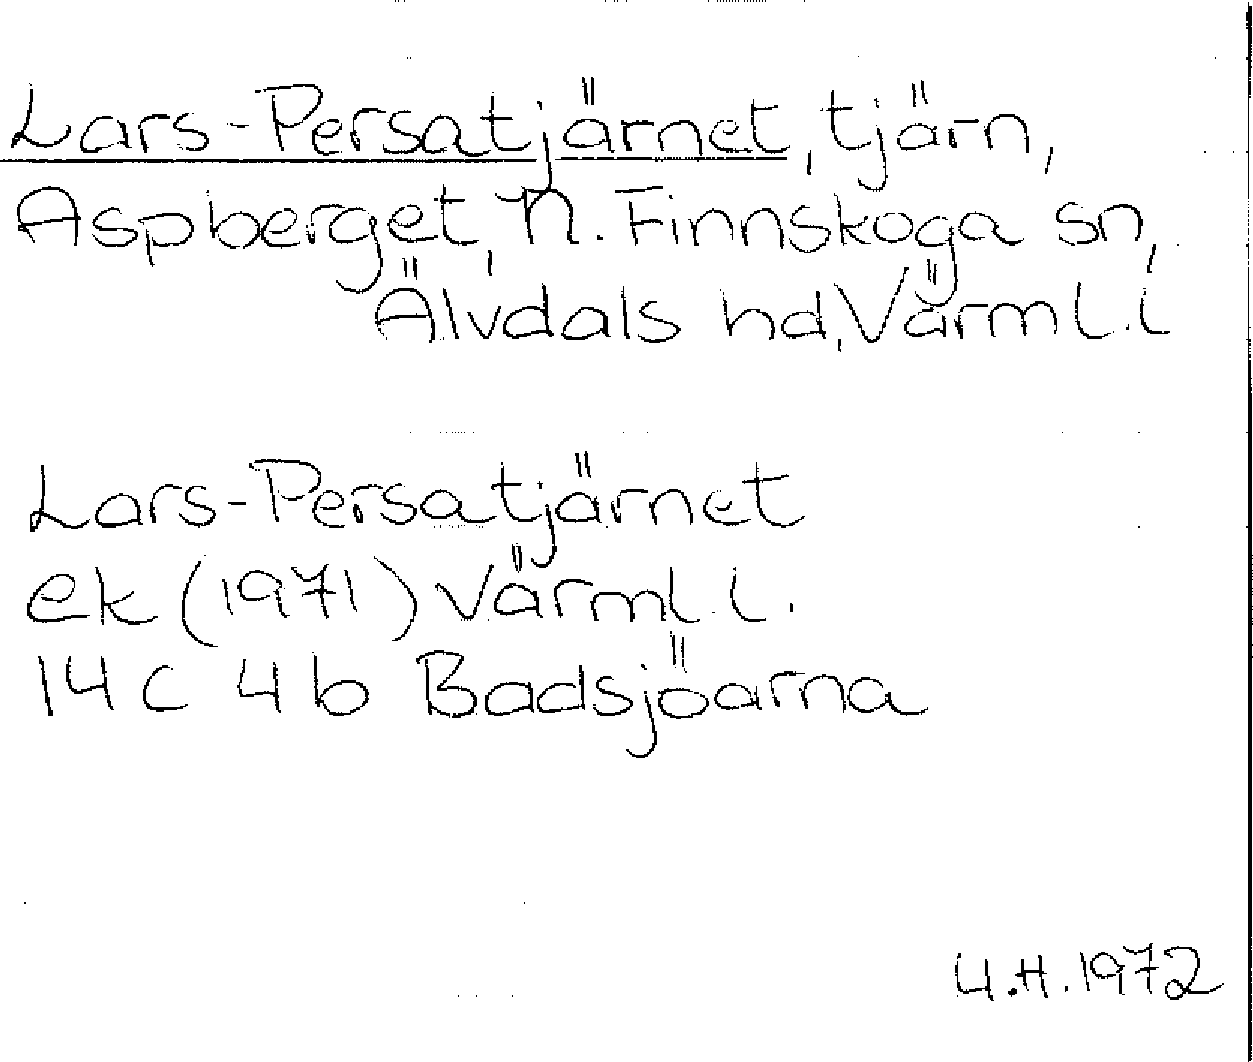 Lars-Persatjärnet, tjärn,
Aspberget, N. Finnskoga sn,
Älvdals hd, Värml. l
Lars-Persatjärnet
ek (1971) Värml. l.
14 c 4 b Badsjöarna
U.H. 1972